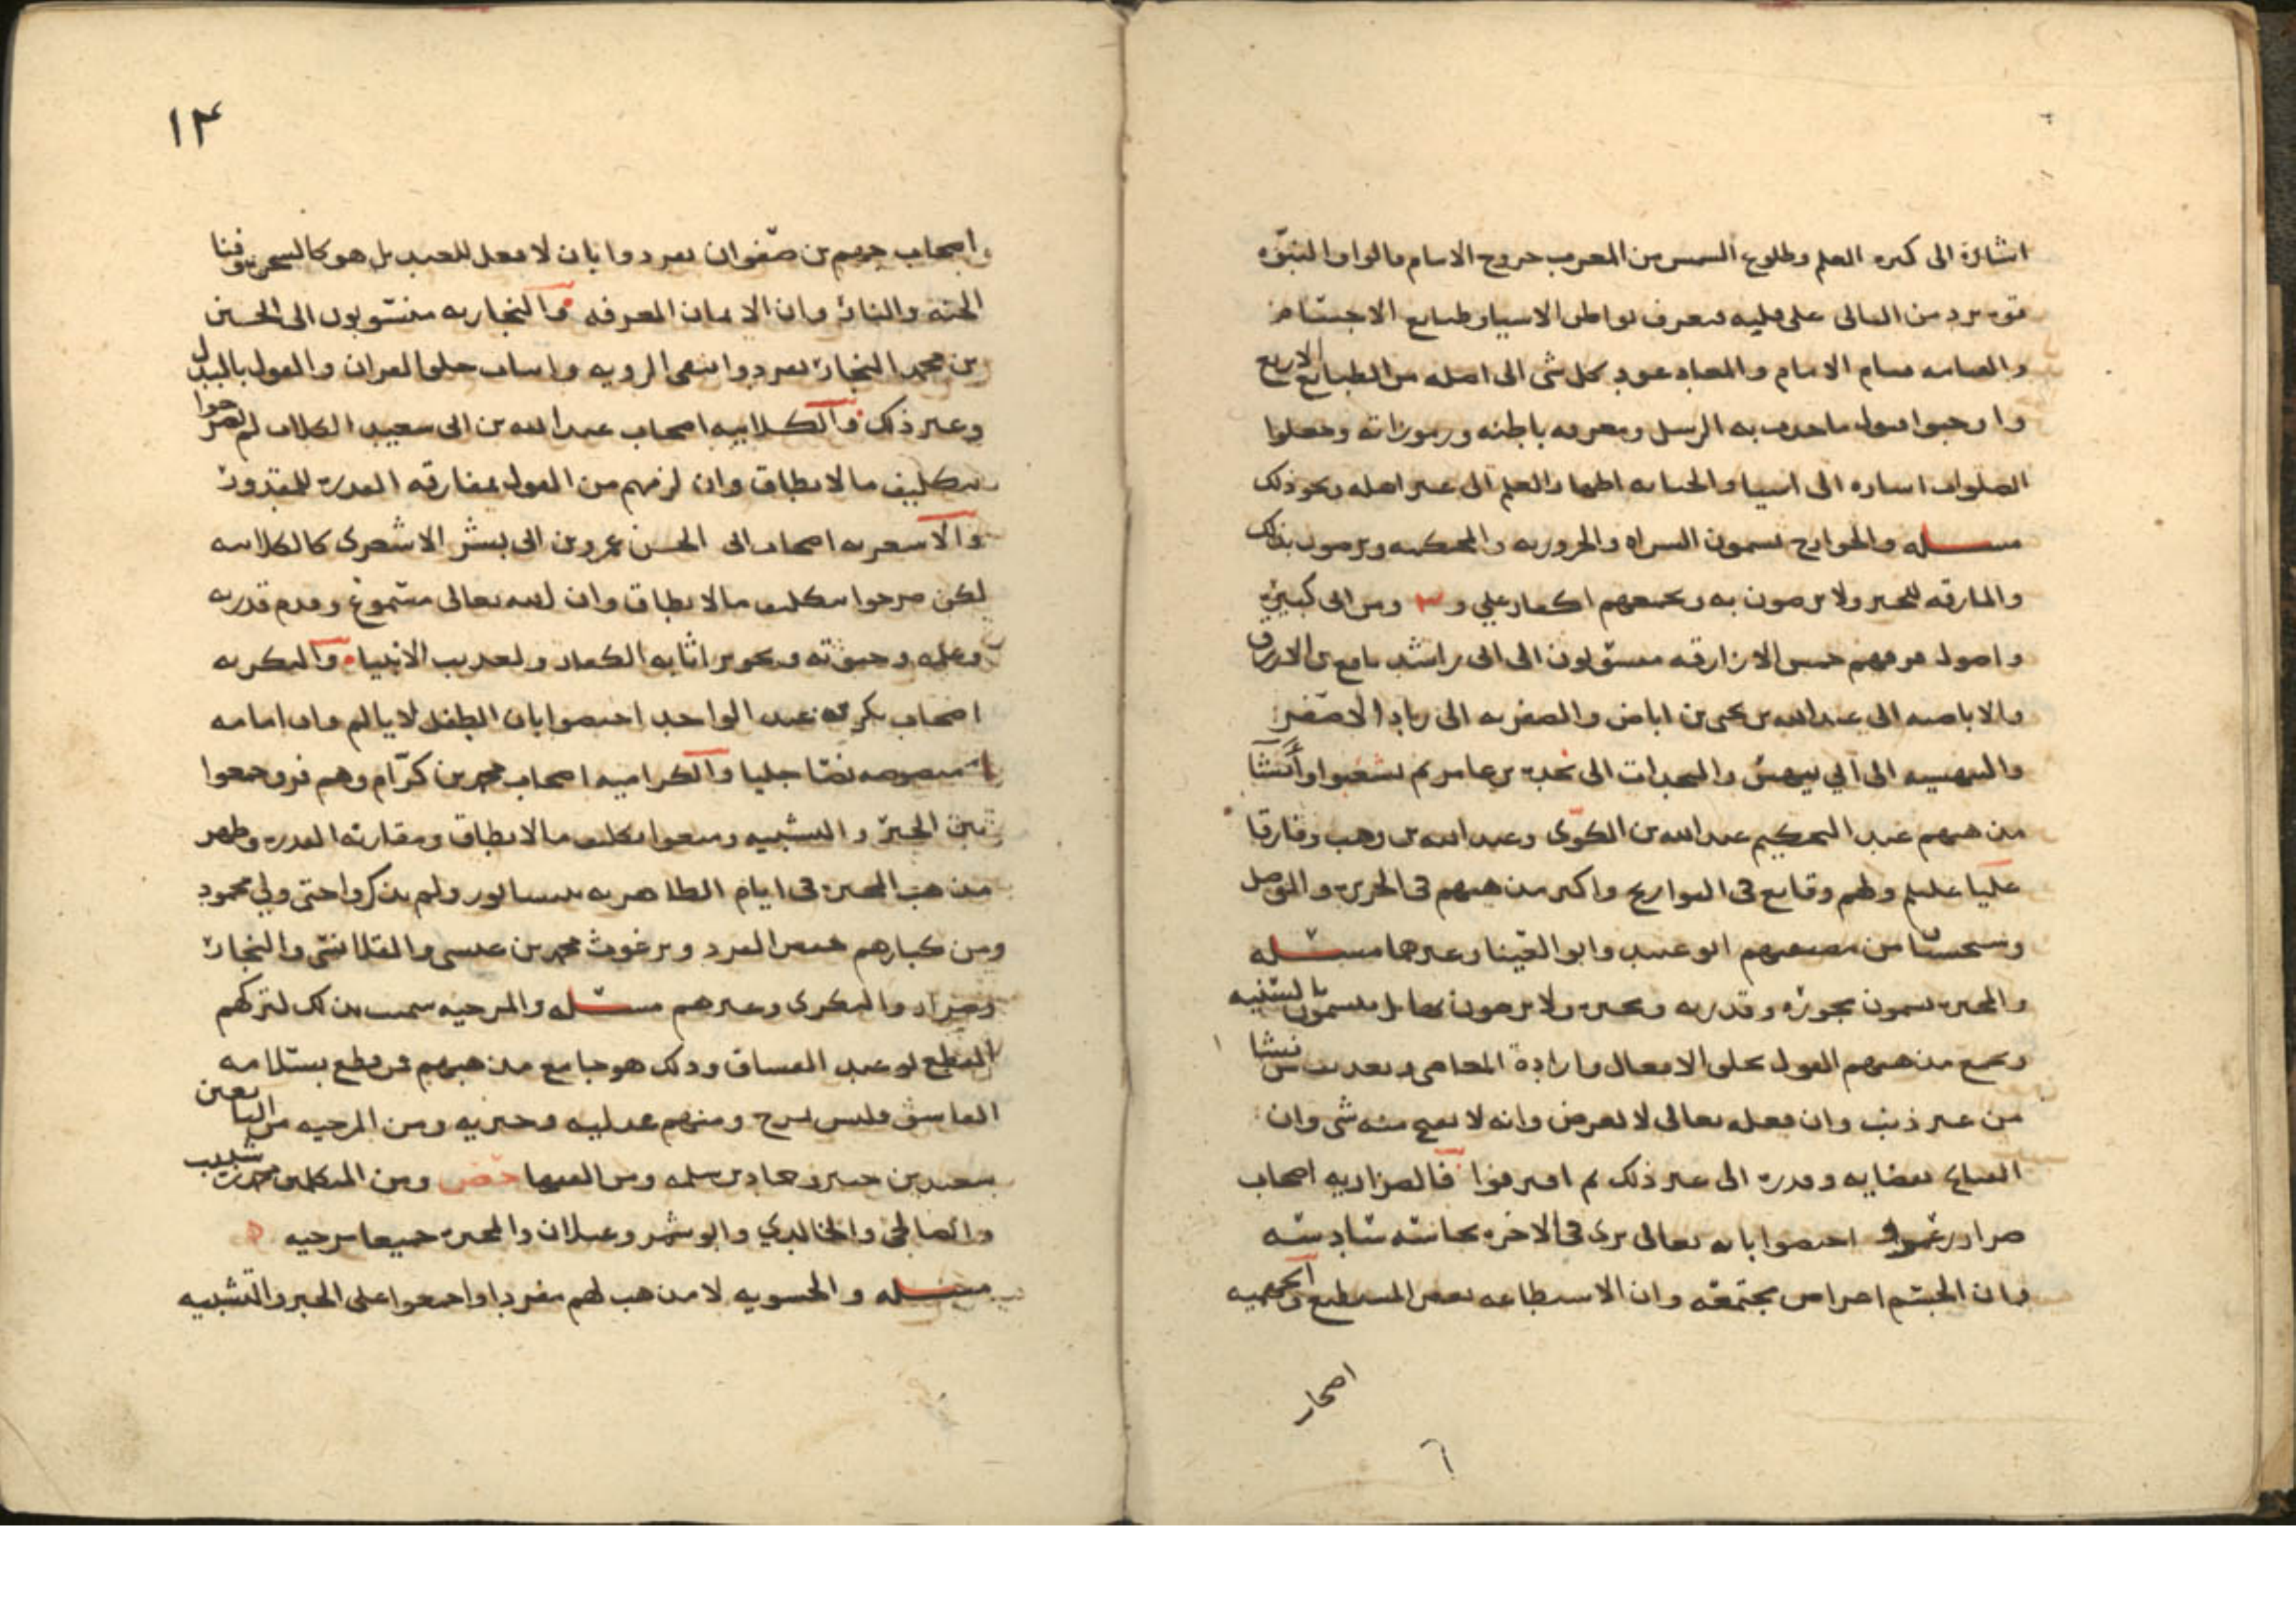 اشارة الى كبره العلم وطلوع الشمس من المغرب خروج الامام قالوا والنبوّه
قوه ترد من التالى على قلبه فيعرف بواطن الاشيا وطبايع الاجسام
والقيامه قيام الامام والمعاد عود كل شى الى اصله من الطبايع الاربع
واوجبوا قبول ما جات به الرسل ومعرفه باطنه ورموزاته وجعلوا
الصلوات اشاره الى اشيا والجنابه اظهار العلم الى غير اهله ونحو ذلك
مسئله والخوارج يسمون الشراه والحروريه والمحكمه ويرضون بذلك
والمارقه للخبر ولا يرضون به ويجمعهم اكفار علي و ومن اتى كبيرة
واصول فرقهم خمس الازارقه منسوبون الى ابى راشد نافع بن الازرق
والاباضيه الى عبد الله بن يحيى بن اباض والصفريه الى زياد الاصفر
والبيهسيه الى ابي بيهس والنجدات الى نجدة بن عامر ثم تشعبوا وأنشأ
مذهبهم عند التحكيم عبد الله بن الكوّى وعبد الله بن وهب وفارقا
عليا عليلم ولهم وقايع فى التواريخ واكثر مذهبهم فى الجزيرة والموصل
وسجستان من مصنفيهم ابو عبيد وابو العينا وغيرهما مسئله
والمجبرة يسمون مجورة وقدريه ومجبرة ولا يرضون بها بل يتسمون بالسنيه
ويجمع مذهبهم القول بخلق الافعال وارادة المعاصى وتعذيب من يشا
من غير ذنب وان فعله تعالى لا لغرض وانه لا يقبح منه شى وان
القبايح بقضايه وقدره الى غير ذلك ثم افترقوا فالضراريه اصحاب
ضرار بن عمرو اختصوا بانه تعالى يرى فى الاخره بحاسه سادسه
وان الجسم اعراض مجتمعه وان الاستطاعه بعض المستطيع والجهميه
اصحاب
٦
١٢
واصحاب جهم بن صفوان تفردوا بان لا فعل للعبد بل هو كالشجره وفنا
الجنه والنار وان الايمان المعرفه والنجاريه منسوبون الى الحسين
بن محمد النجار تفردوا بنفى الرويه واثبات خلق القران والقول بالبدل
وغير ذلك والكلابيه اصحاب عبد الله بن ابى سعيد الكلاب لم يصرحوا
بتكليف ما لا يطاق وان لزمهم من القول بمقارنه القدرة للمقدور
والاشعريه اصحاب ابى الحسن عمرو بن ابى بشر الاشعرى كالكلابيه
لكن صرحوا بتكليف ما لا يطاق وان الله تعالى مسموع وقدم قدرته
وعلمه وحيوته وتجويز اثابه الكفار وتعذيب الانبياء والبكريه
اصحاب بكر بن عبد الواحد اختصوا بان الطفل لا يالم وان امامه
منصوصه نصا جليا والكراميه اصحاب محمد بن كرّام وهم فرق جمعوا
بين الجبر والتشبيه ومنعوا تكليف ما لا يطاق ومقارنه القدره وظهر
مذهب المجبرة فى ايام الطاهريه بنيسابور ولم يذكروا حتى ولي محمود
ومن كبارهم حفص الفرد وبرغوث محمد بن عيسى والقلانسى والنجار
وضرار والبكرى وغيرهم مسئله والمرجيه سميت بذلك لتركهم
القطع بوعيد الفساق وذلك هو جامع مذهبهم فمن قطع بسلامه
الفاسق فليس بمرج ومنهم عدليه وجبريه ومن المرجيه من التابعين
سعيد بن جبير وحماد بن سلمه ومن الفقها ومن المتكلمين محمد بن شبيب
والصالحى والخالدي وابو شمر وغيلان والمجبرة جميعا مرجيه
مسئله والحشويه لا مذهب لهم منفردا واجمعوا على الجبر والتشبيه